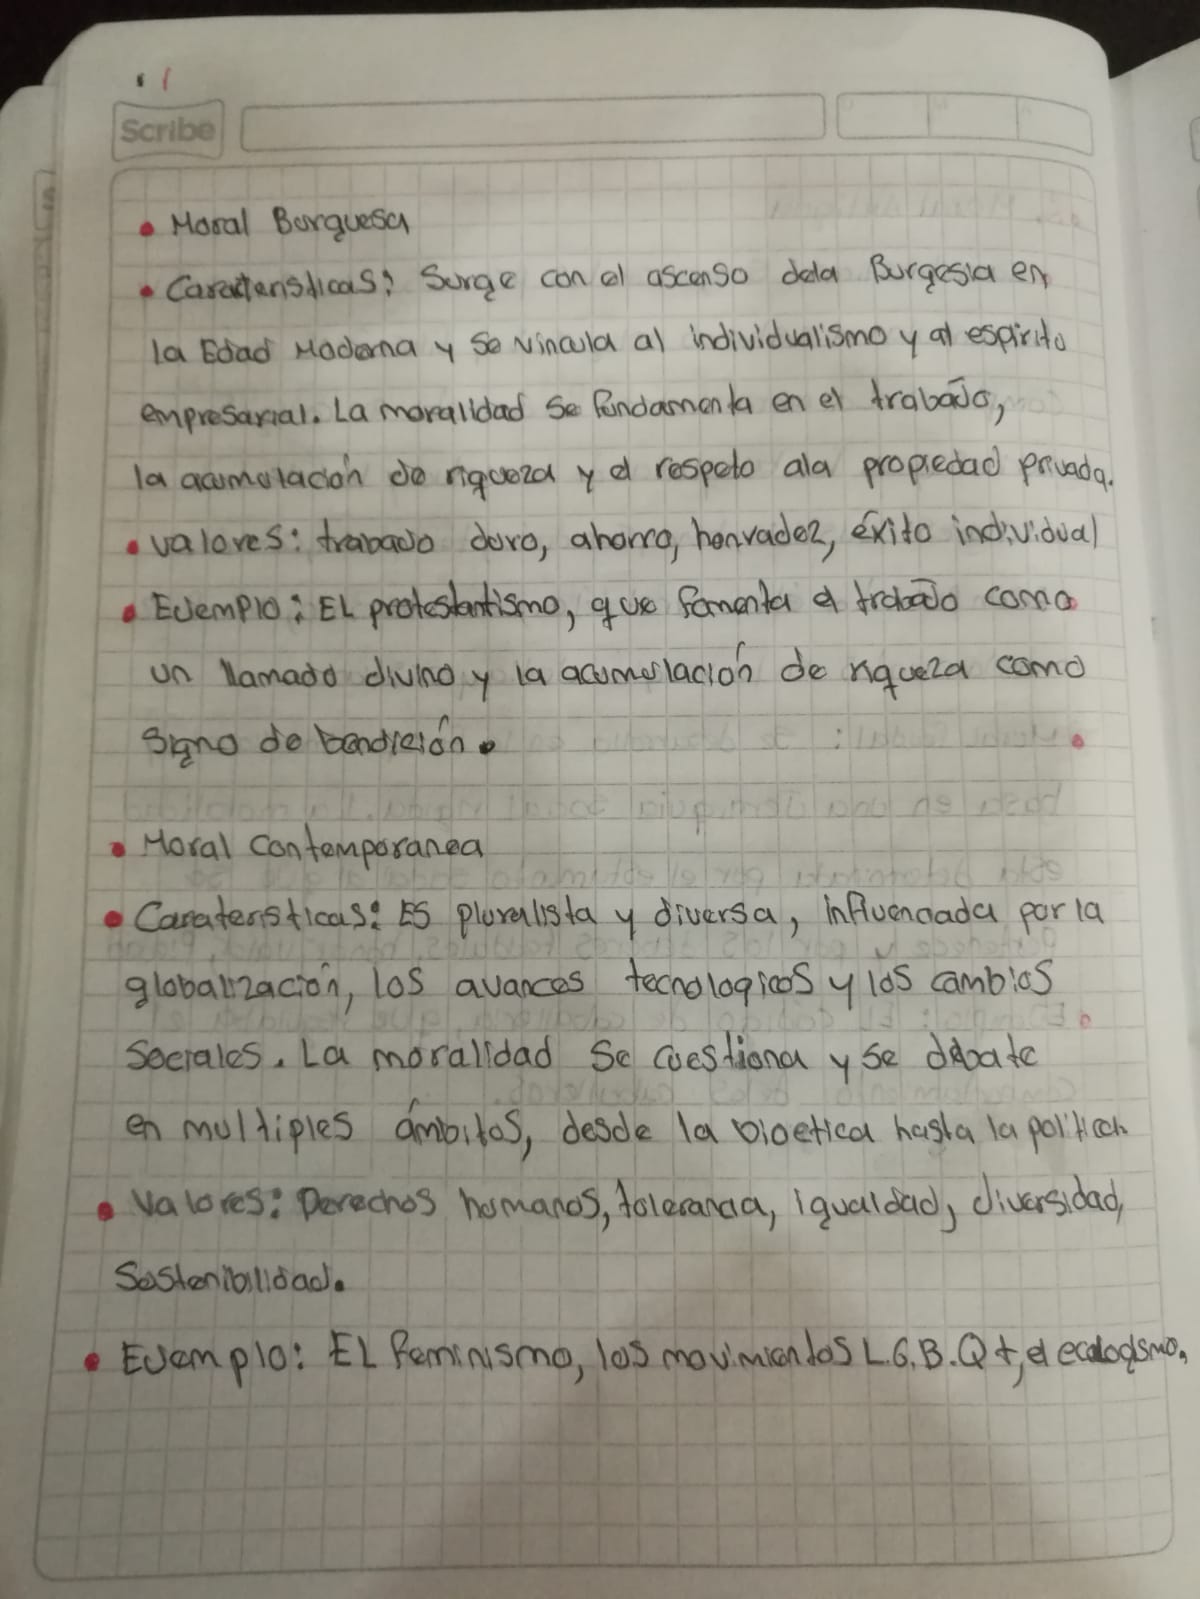 Scribe
• Moral Burguesa
• Caracteristicas: Surge con el ascenso dela Burgesia en
la Edad Moderna y se vincula al individualismo y al espirito
empresarial. La moralidad se fundamenta en el trabajo,
la acumulación de riqueza y el respeto ala propiedad privada.
• valores: trabajo duro, ahorro, honradez, éxito individual
• Ejemplo: EL protestantismo, que fomenta el trabajo como
un llamado divino y la acumulación de riqueza como
signo de bendición.
• Moral contemporanea
• Carateristicas: ES pluralista y diversa, influenciada por la
globalización, los avances tecnologicos y los cambios
sociales. La moralidad se cuestiona y se debate
en multiples ámbitos, desde la bioetica hasta la politica
• Valores: Derechos humanos, tolerancia, igualdad, diversidad,
Sostenibilidad.
• Ejemplo: EL feminismo, los movimientos L.G.B.Q +, el ecologismo.